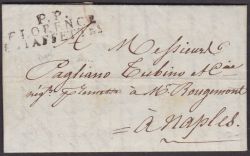 P.P.
FLORENCE
A Messieurs
Pagliano Tubino et Cie
négts à Mr. Rougemont
à Naples.